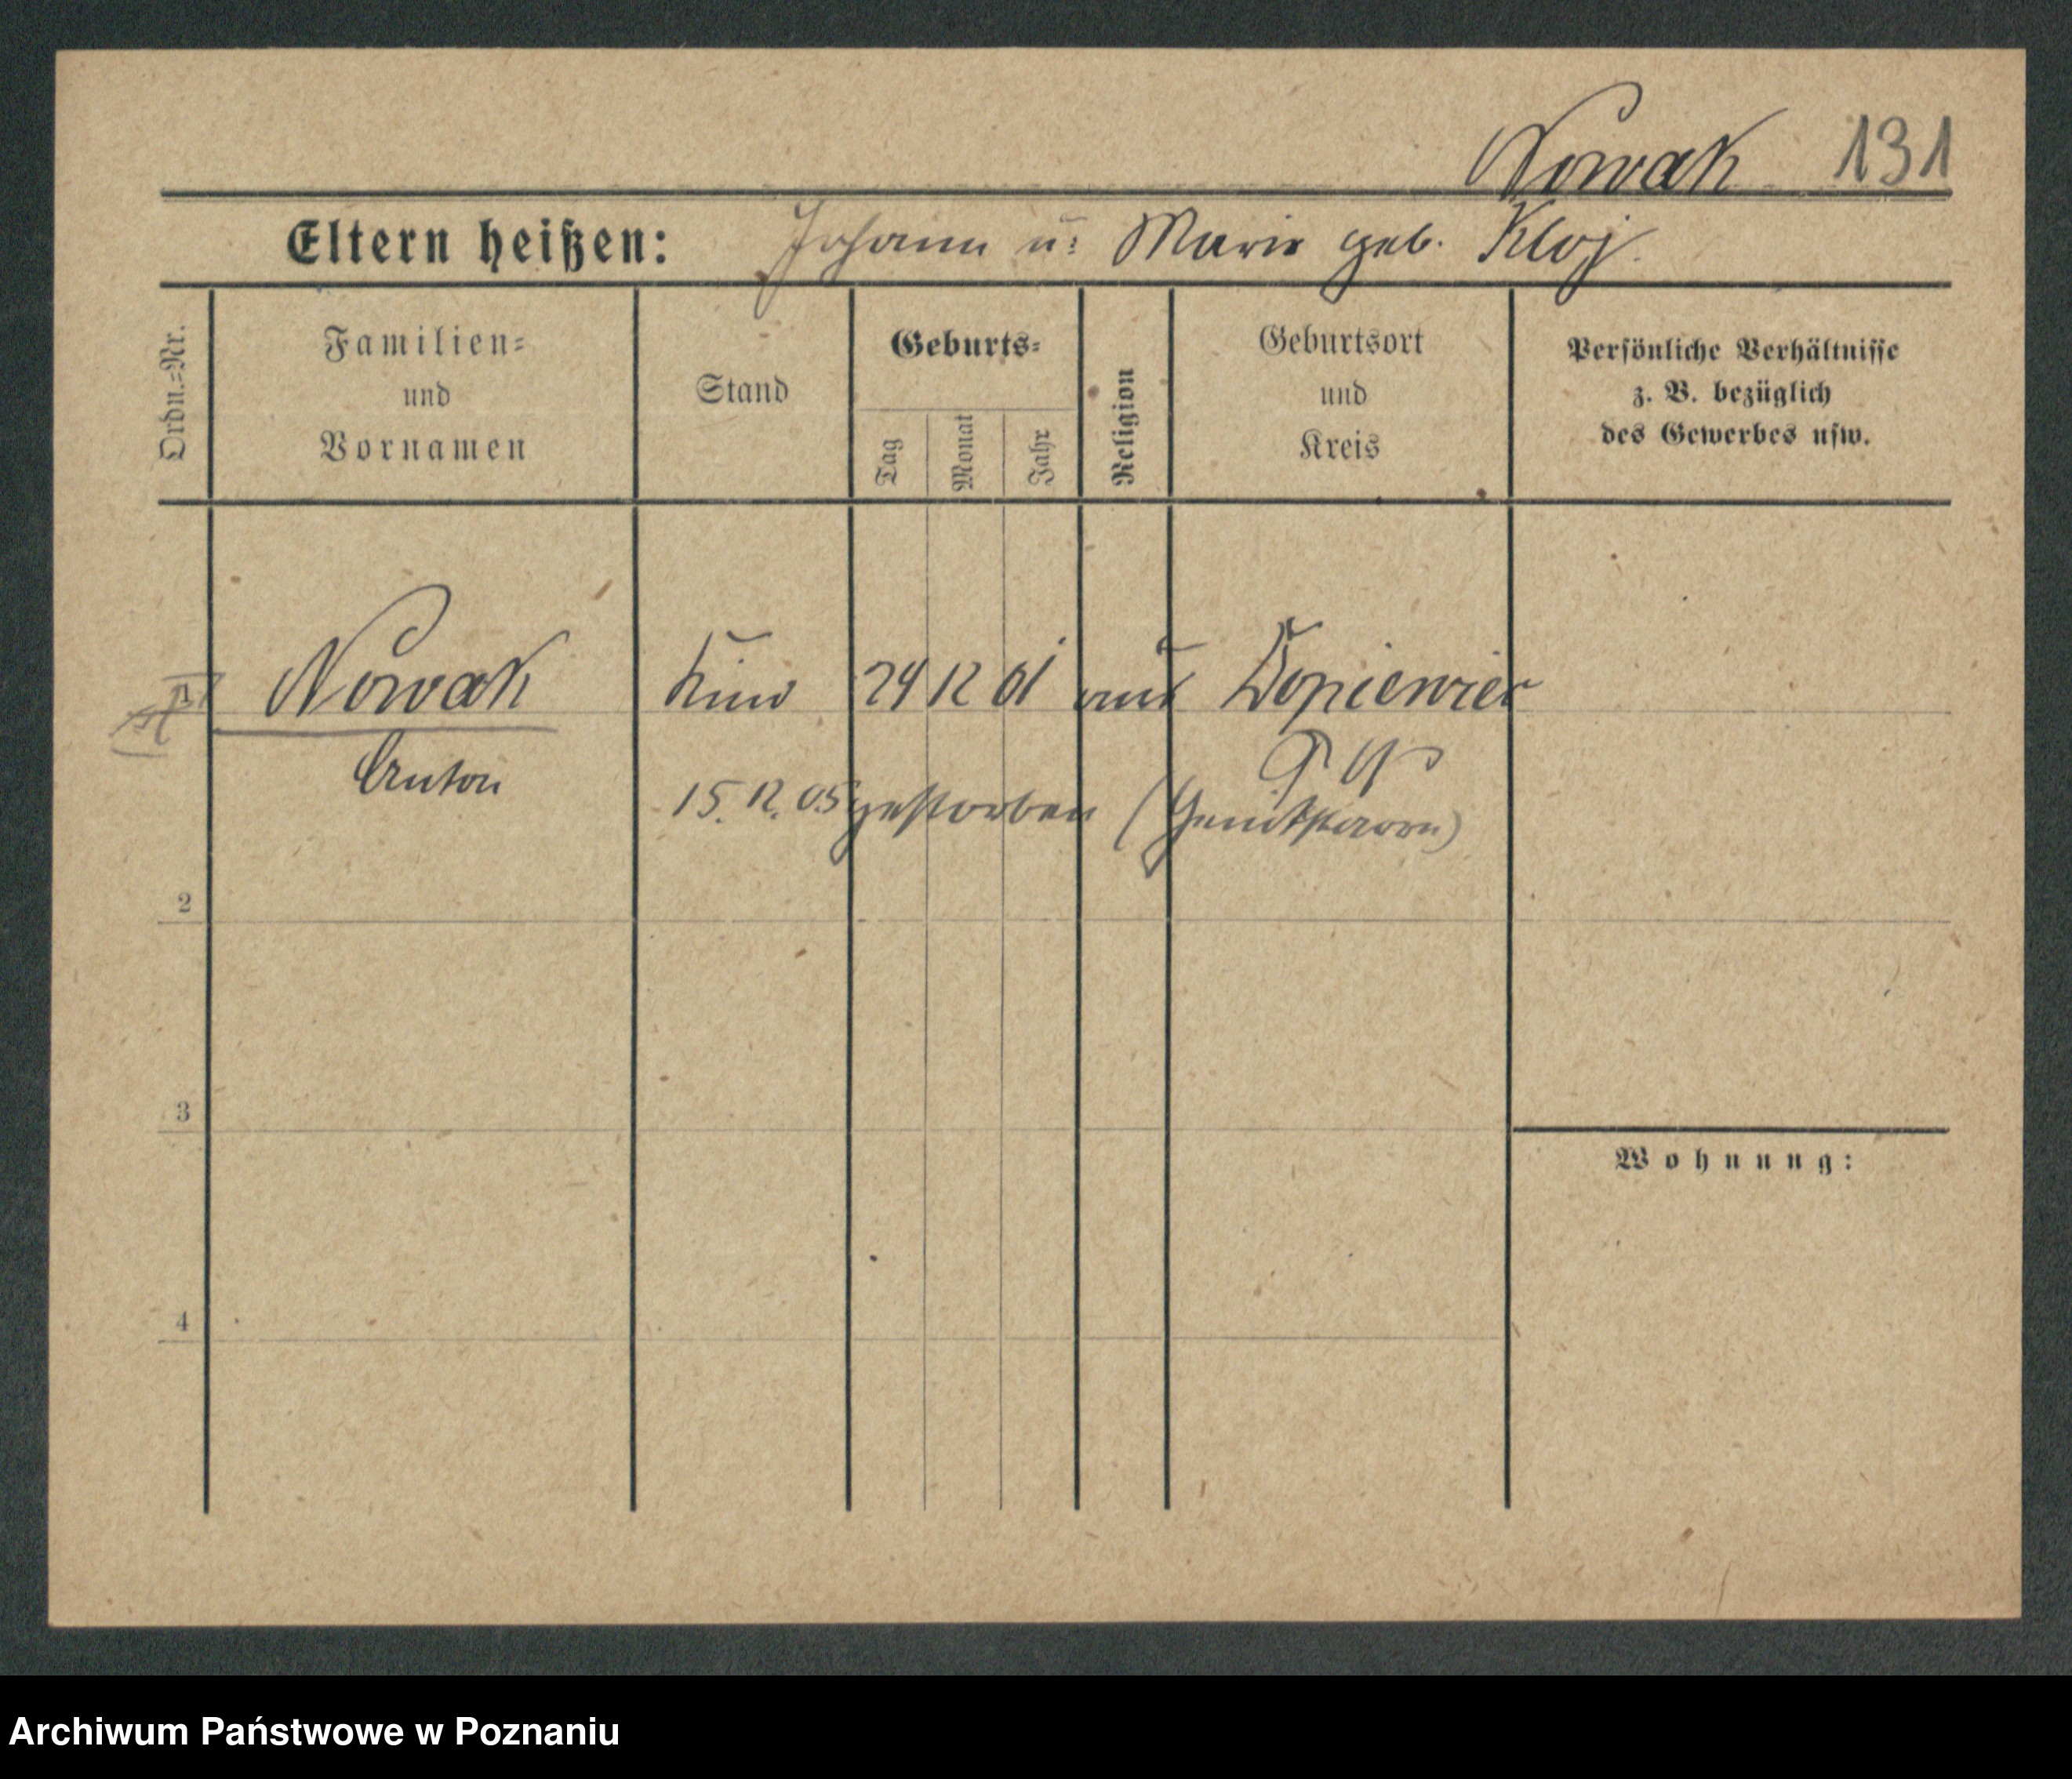 Nowak 131
Eltern heißen: Johann u. Marie geb. Kloj.
Ordn.=Nr.
Familien=
und
Vornamen
Stand
Geburts=
Tag
Monat
Jahr
Religion
Geburtsort
und
Kreis
Persönliche Verhältnisse
z. B. bezüglich
des Gewerbes usw.
Nowak Kind 24 12 01
Anton
15. 12. 05 gestorben
2
3
Wohnung:
4
Archiwum Państwowe w Poznaniu